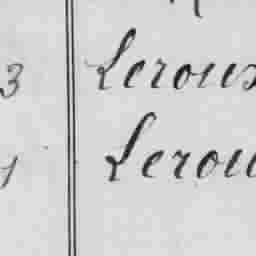 3 Leroux
1 Lerou